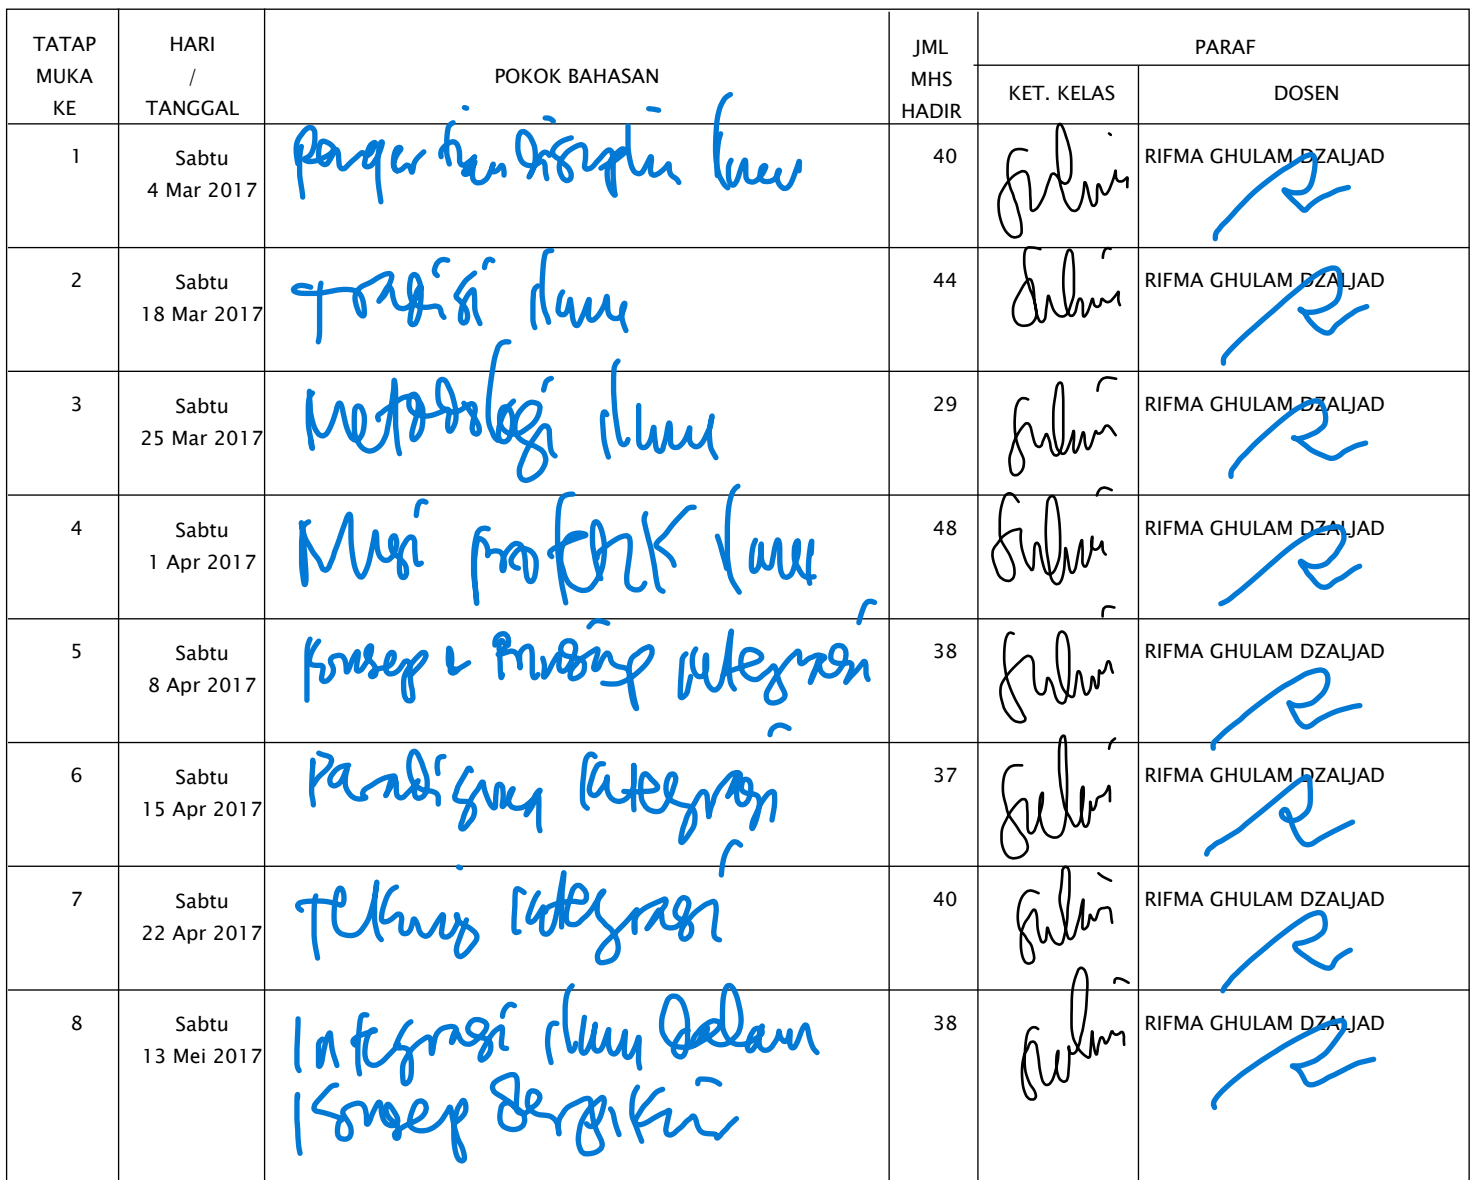 TATAP MUKA KE | HARI / TANGGAL | POKOK BAHASAN | JML MHS HADIR | PARAF
KET. KELAS | DOSEN
1 | Sabtu 4 Mar 2017 | Pengertian Disiplin Ilmu | 40 | RIFMA GHULAM DZALJAD
2 | Sabtu 18 Mar 2017 | Tradisi ilmu | 44 | RIFMA GHULAM DZALJAD
3 | Sabtu 25 Mar 2017 | Metodologi ilmu | 29 | RIFMA GHULAM DZALJAD
4 | Sabtu 1 Apr 2017 | Misi profetik ilmu | 48 | RIFMA GHULAM DZALJAD
5 | Sabtu 8 Apr 2017 | Konsep & Prinsip integrasi | 38 | RIFMA GHULAM DZALJAD
6 | Sabtu 15 Apr 2017 | Paradigma integrasi | 37 | RIFMA GHULAM DZALJAD
7 | Sabtu 22 Apr 2017 | Teknis integrasi | 40 | RIFMA GHULAM DZALJAD
8 | Sabtu 13 Mei 2017 | Integrasi ilmu dalam | 38 | RIFMA GHULAM DZALJAD
Konsep Berpikir